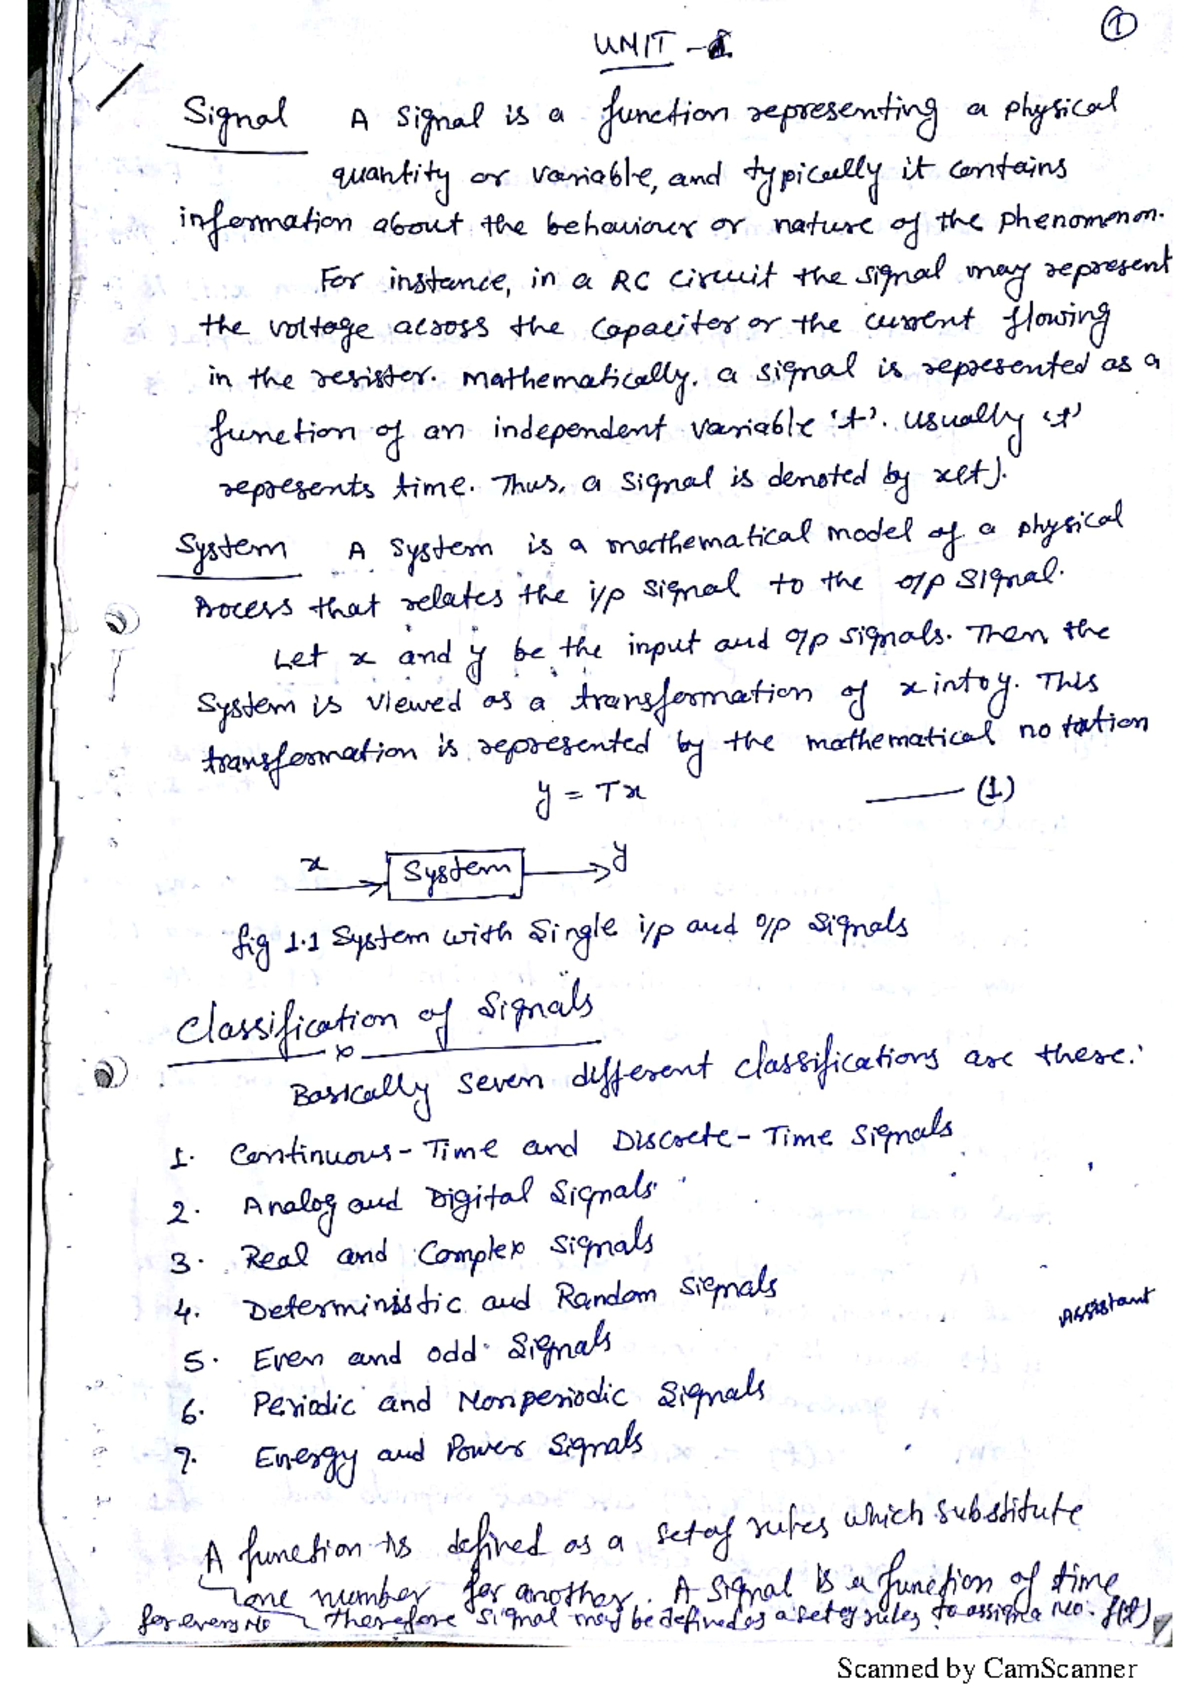 1
UNIT - 1
Signal A signal is a function representing a physical
quantity or variable, and typically it contains
information about the behaviour or nature of the phenomenon.
For instance, in a RC circuit the signal may represent
the voltage across the capacitor or the current flowing
in the resister. mathematically, a signal is represented as a
function of an independent variable 't'. usually 't'
represents time. Thus, a signal is denoted by x(t).
System A system is a mathematical model of a physical
Process that relates the i/p signal to the o/p signal.
Let x and y be the input and o/p signals. Then, the
System is viewed as a transformation of x into y. This
transformation is represented by the mathematical notation
y = Tx —— (1)
x System y
fig 1.1 System with Single i/p and o/p signals
Classification of Signals
Basically seven different classifications are there.
1. Continuous-Time and Discrete-Time Signals
2. Analog and Digital Signals
3. Real and Complex Signals
4. Deterministic and Random Signals
Assistant
5. Even and odd Signals
6. Periodic and Nonperiodic Signals
7. Energy and Power Signals
A function is defined as a set of rules which substitute
one number for another. A signal is a function of time
for every No therefore signal may be defined as a set of rules to assign a No. f(t)
Scanned by CamScanner